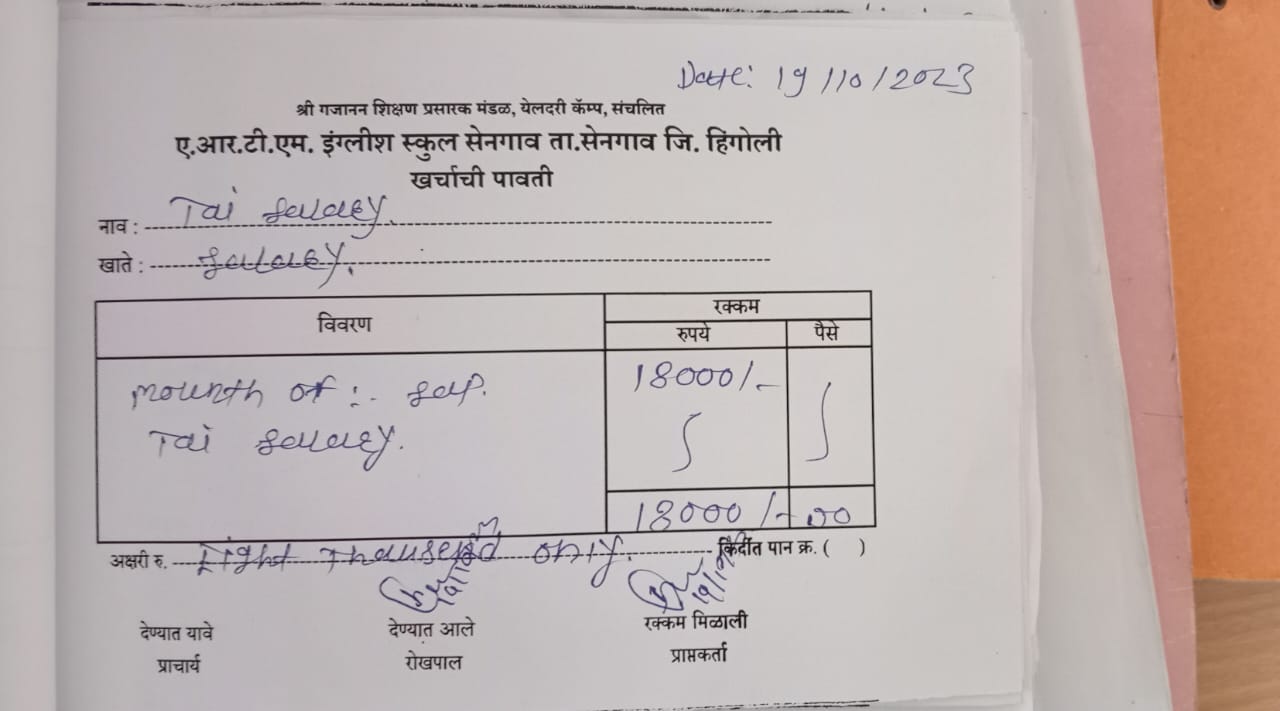 Date: 19/10/2023
श्री गजानन शिक्षण प्रसारक मंडळ, येलदरी कॅम्प, संचलित
ए.आर.टी.एम. इंग्लीश स्कुल सेनगाव ता.सेनगाव जि. हिंगोली
खर्चाची पावती
नाव : Tai Salary.
खाते : Salary.
विवरण रक्कम
रुपये पैसे
mounth of :- Sep. 18000/-
Tai Salary.
18000/- 00
अक्षरी रु. Eight Thousend only. किर्दीत पान क्र. ( )
देण्यात यावे देण्यात आले रक्कम मिळाली
प्राचार्य रोखपाल प्राप्तकर्ता